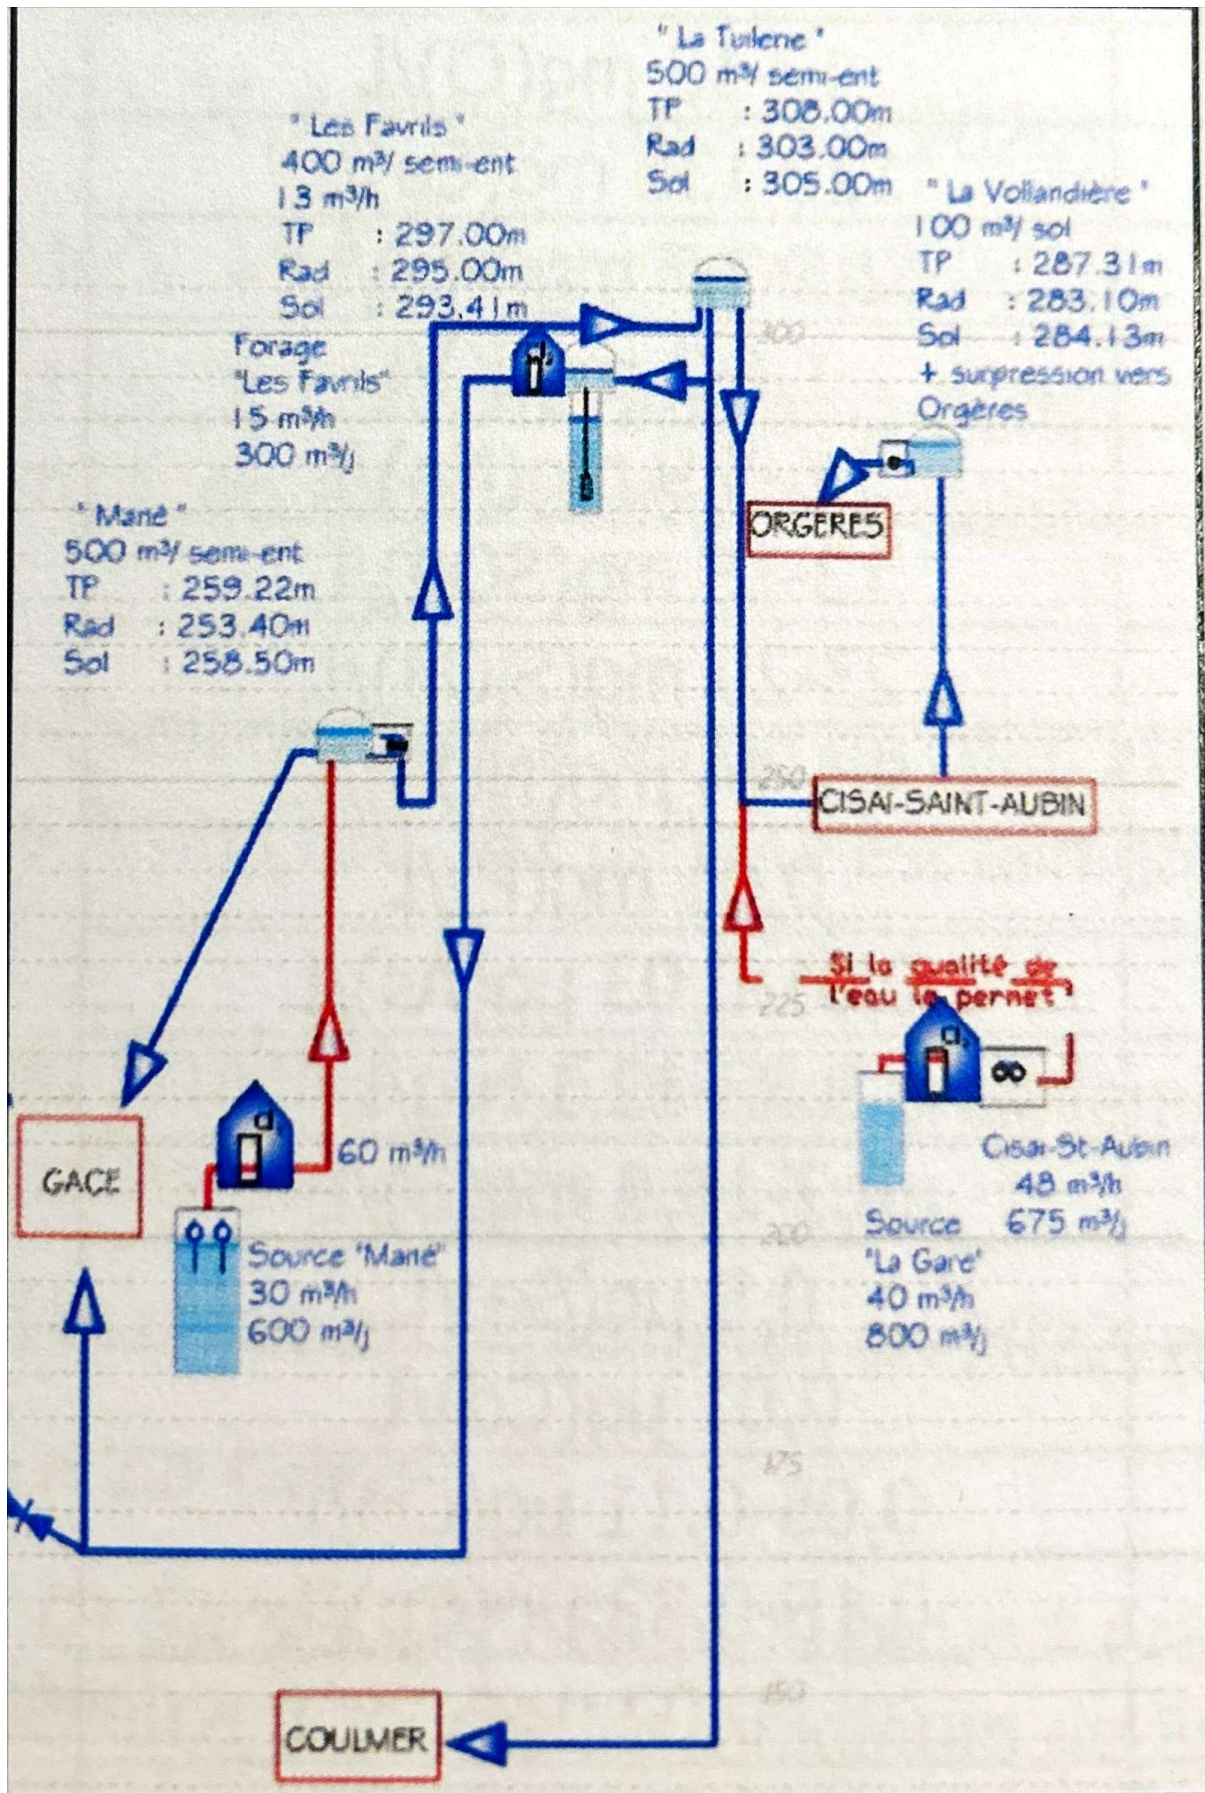 " La Tuilerie "
500 m³/ semi-ent
TP : 308.00m
Rad : 303.00m
Sol : 305.00m
" Les Favrils "
400 m³/ semi-ent
13 m³/h
TP : 297.00m
Rad : 295.00m
Sol : 293.41m
" La Vollandière "
100 m³/ sol
TP : 287.31m
Rad : 283.10m
Sol : 284.13m
+ surpression vers
Orgères
Forage
"Les Favrils"
15 m³/h
300 m³/j
300
ORGERES
" Mané "
500 m³/ semi-ent
TP : 259.22m
Rad : 253.40m
Sol : 258.50m
250
CISAI-SAINT-AUBIN
Si la qualité de
l'eau le permet
225
Cl₂
Cisai-St-Aubin
48 m³/h
675 m³/j
Source
"La Gare"
40 m³/h
800 m³/j
GACE
cl
60 m³/h
Source "Mané"
30 m³/h
600 m³/j
200
175
150
COULMER